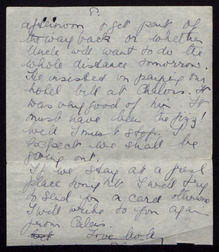 afternoon & get part of
the way back or whether
Uncle will want to do the
whole distance tomorrow.
He insisted on paying our
hotel bill at Chalons. It
was very good of him. It
must have been
Well I must stop,
suspect we shall be
going out.
If we stay at a fresh
place tonight I will try
to send you a card otherwise
I will write to you again
from Calais.
Love